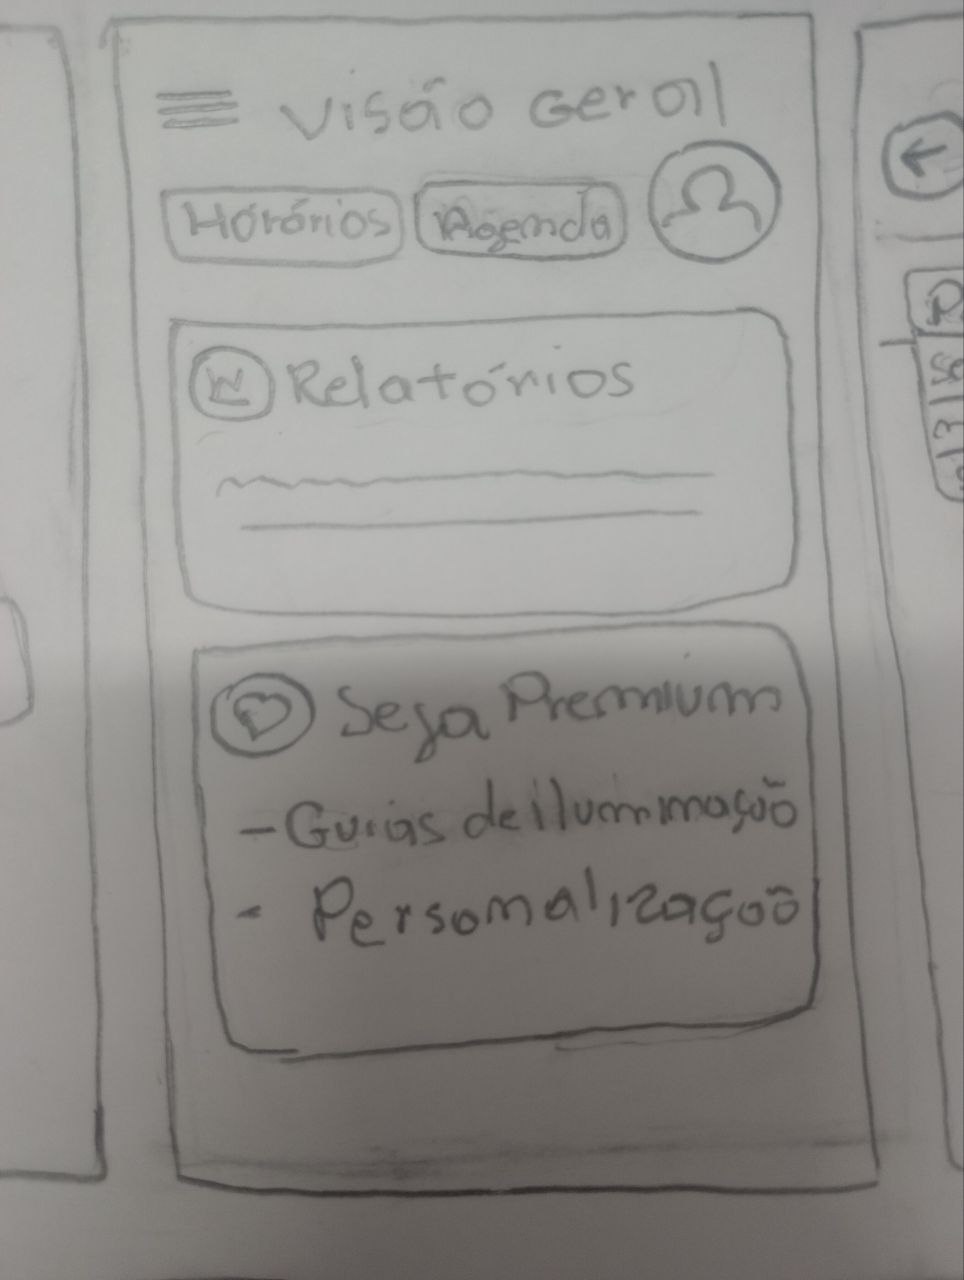 Visão Geral
Horários Agenda
Relatórios
Seja Premium
- Guias de ilumimação
- Persomalização